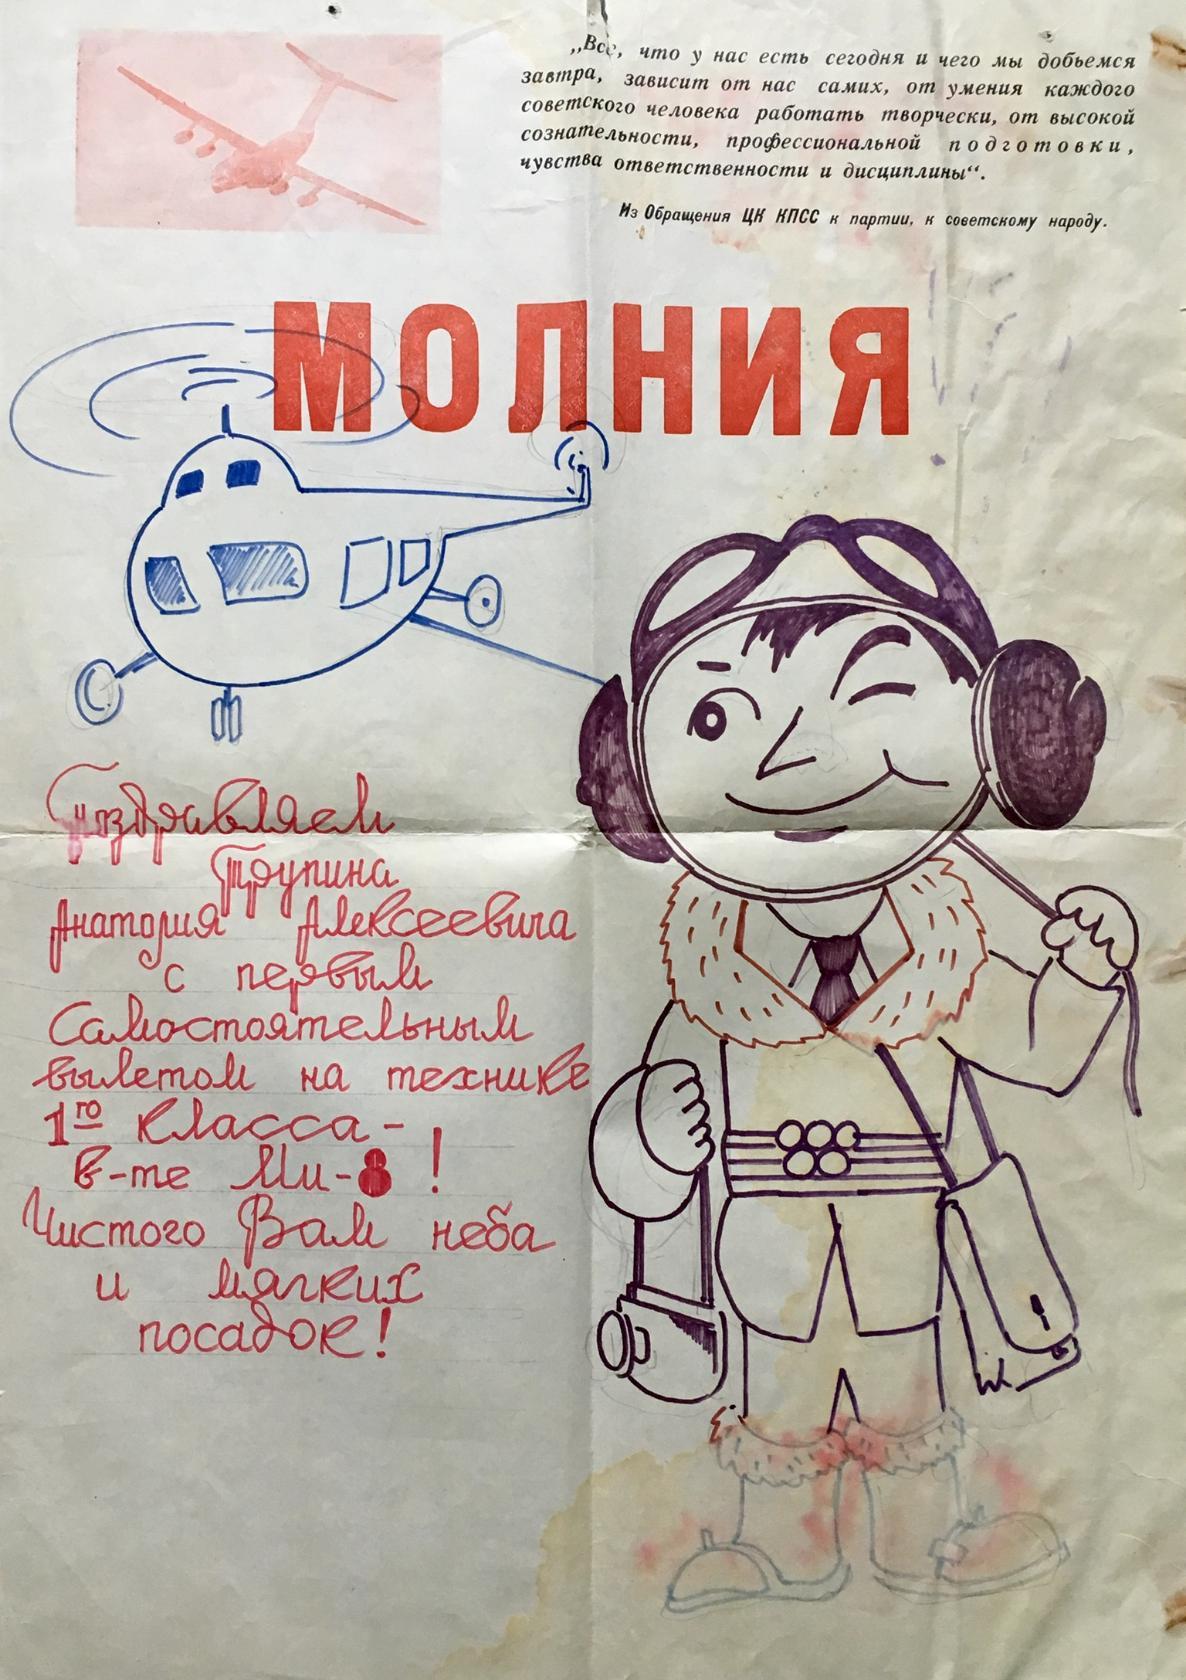 „Все, что у нас есть сегодня и чего мы добьемся
завтра, зависит от нас самих, от умения каждого
советского человека работать творчески, от высокой
сознательности, профессиональной подготовки,
чувства ответственности и дисциплины“.
Из Обращения ЦК КПСС к партии, к советскому народу.
МОЛНИЯ
Поздравляем
Трупина
Анатория Алексеевича
с первым
Самостоятельным
вылетом на технике
1го класса-
в-те Ми-8!
Чистого Вам неба
и мягких
посадок!